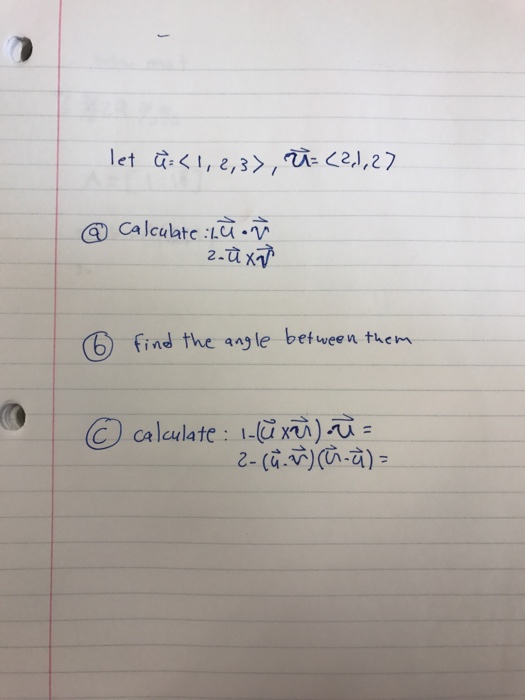 let u⃗=<1,2,3>, v⃗=<2,1,2>
ⓐ Calculate: 1. u⃗·v⃗
2- u⃗×v⃗
ⓑ find the angle between them
ⓒ calculate: 1-(u⃗×v⃗)·v⃗=
2-(u⃗.v⃗)(v⃗-u⃗)=